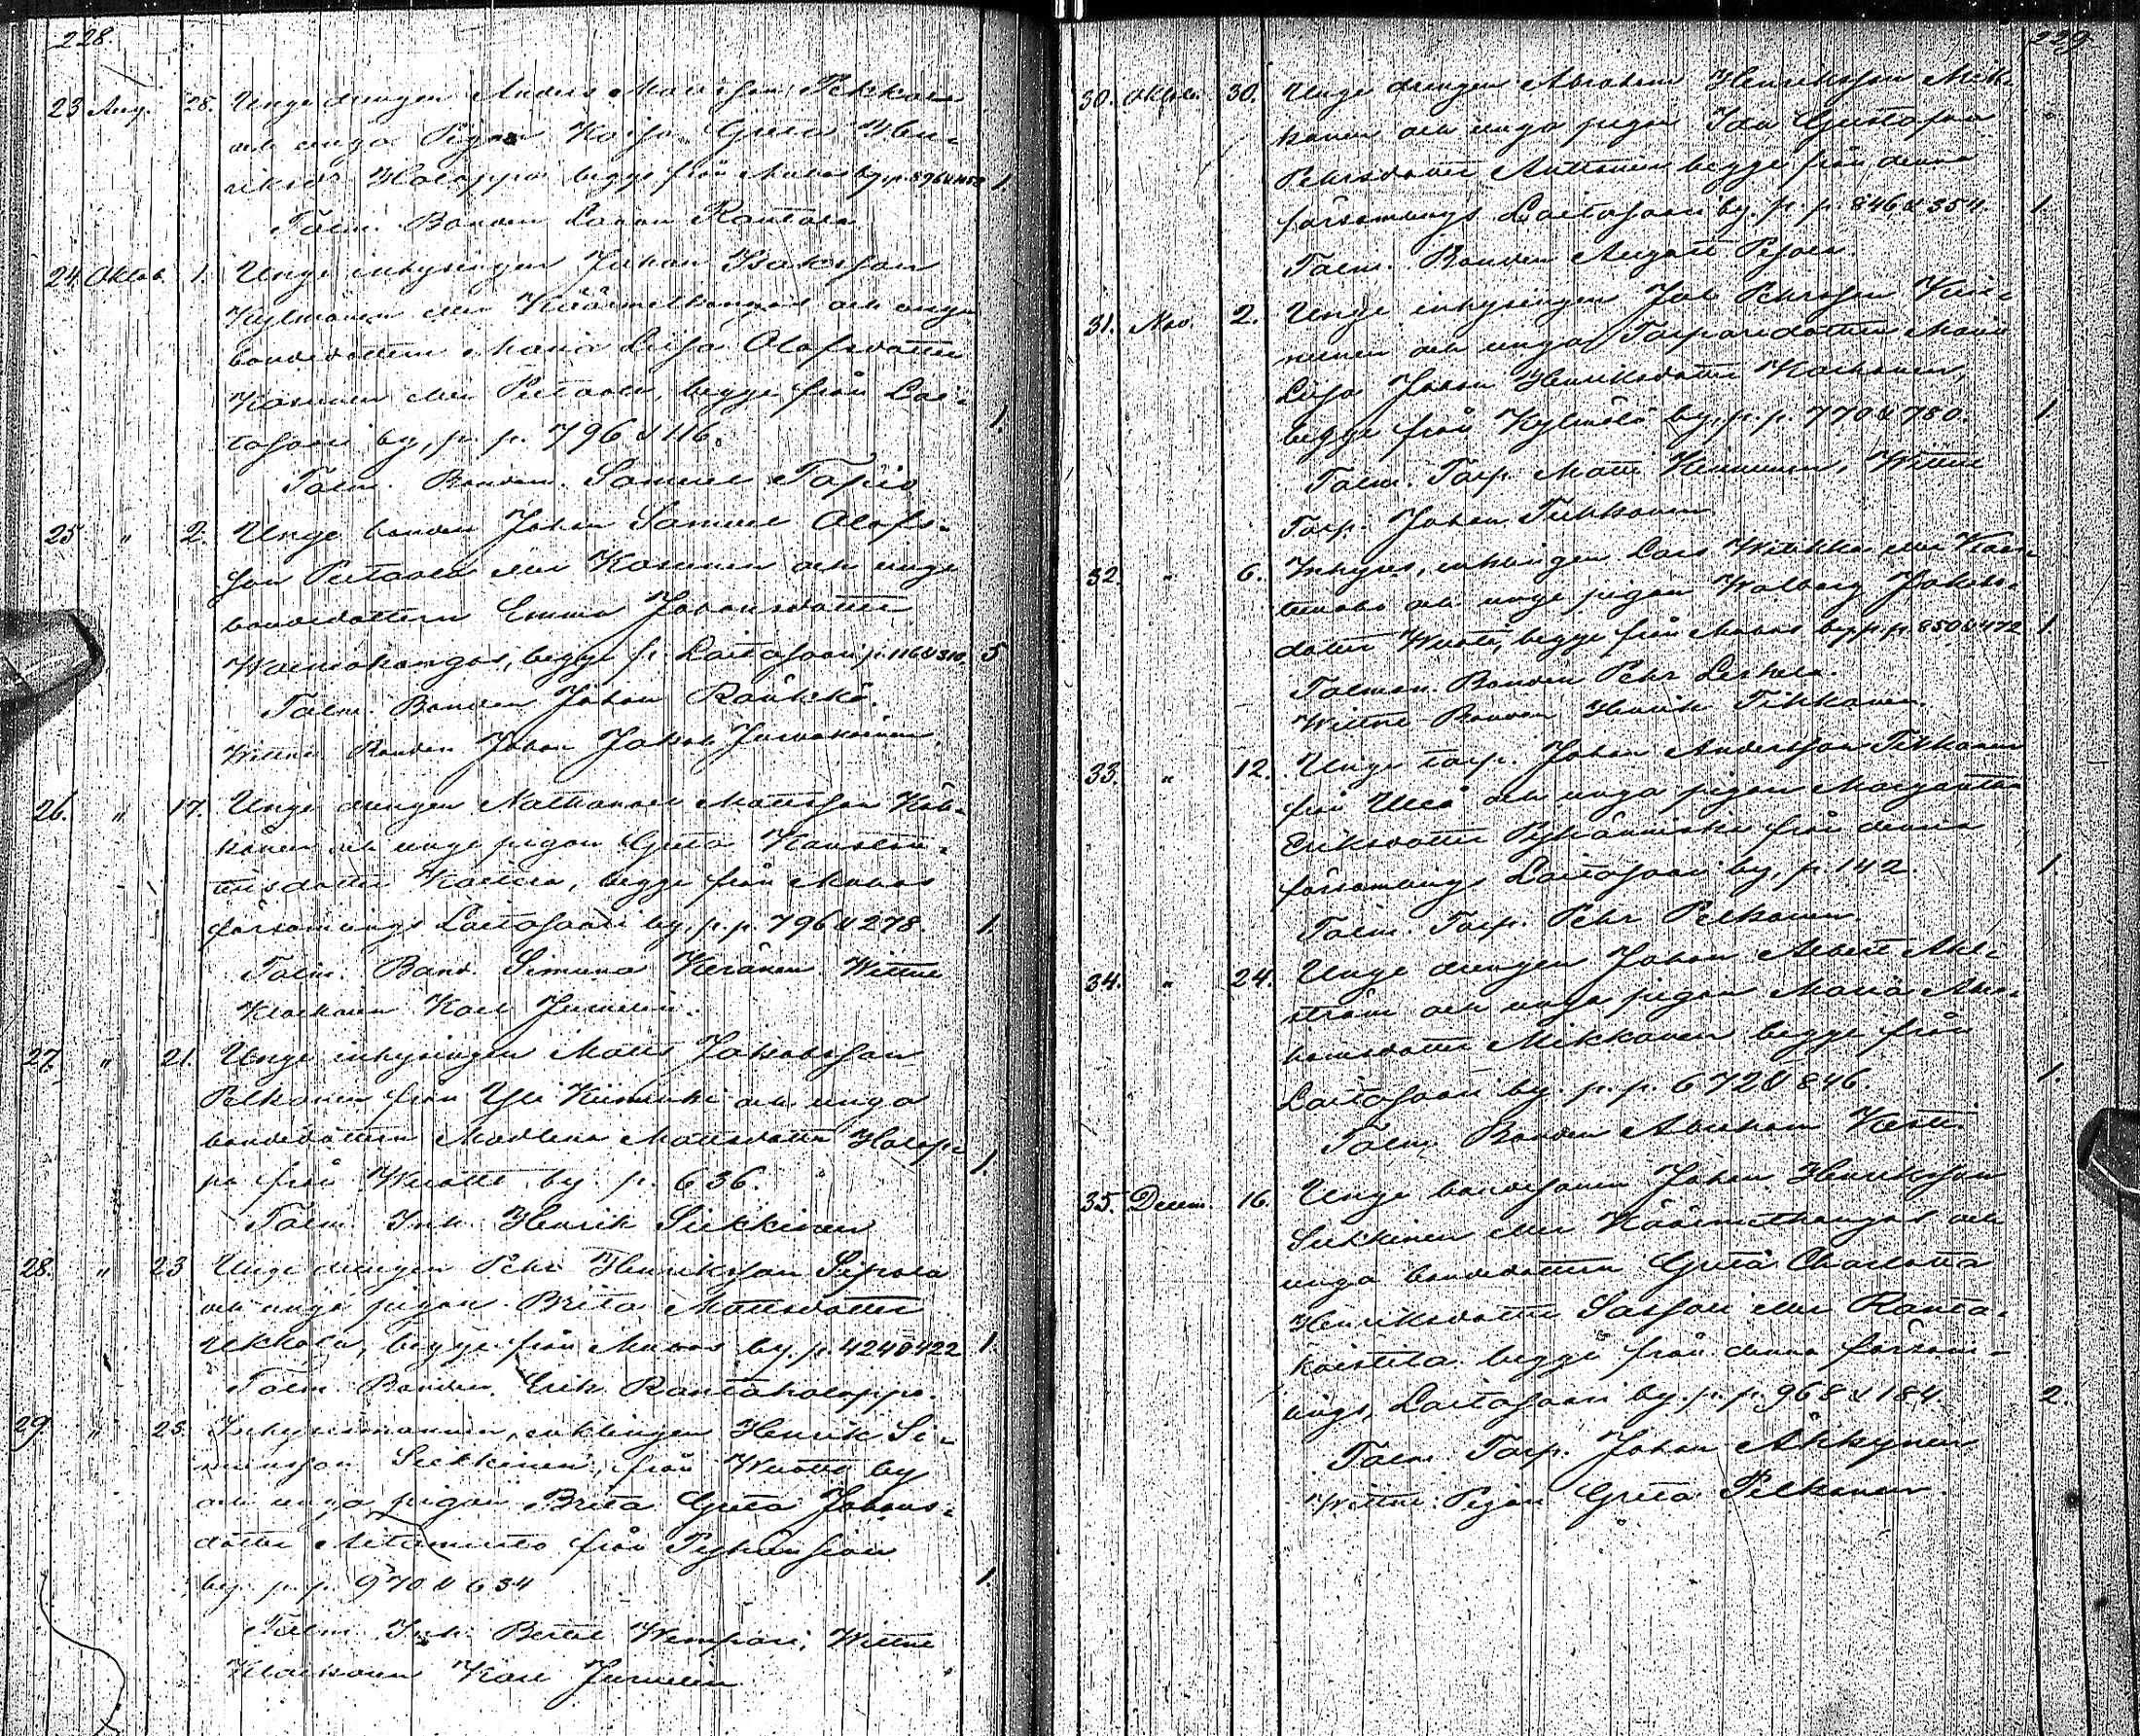 228.
23 Aug. 28. Unge drengen Anders Mattsson Pekkala
och unga Pigan Kajsa Greta Hen-
riksdr Holappa begge från Muhos by p. 896 &
Talm. Bonden Johan Rantala
24. Oktob. 1. Unge inhysingen Johan Isaksson
Kylmänen eller Käärmekangas och unga
bondedottern Maria Liisa Olofsdotter
Kosunen eller Pertaola, begge från Lai-
tasaari by, p. p. 796 & 116. 1.
Talm. Bonden Samuel Tapio
25 " 2. Unge bonden Johan Samuel Olofs-
son Pertaola eller Kosunen och unga
bondedottern Emma Johansdotter
Wälimokangas, begge fr. Laitasaari p. 116 & 310. 5
Talm. Bonden Johan Räükkö.
Wittne Bonden Johan Jakob
26. " 17. Unge drengen Nathanael Mattsson Kök-
känen och unga pigan Greta Konstan-
tinsdotter Koistila, begge från Muhos
församlings Laitasaari by, p. p. 796 & 278. 1.
Talm. Bond. Simuna Keränen. Wittne
Klockaren Karl Jurvelin.
27. " 21. Unge inhysingen Matts Jakobsson
Pelkonen från Yli Kiiminki och unga
bondedottern Madlena Mattsdotter Holap-
pa från Wuotto by. p. 636. 1.
Talm. Inh. Henrik Siekkinen
28. " 23 Unge drengen Pehr Henriksson Sipola
och unga pigan Brita Mattsdotter
Ukkola, begge från Muhos by. p. 424 & 422 1.
Talm. Bonden Erik Rantaholappa.
29. " 23. Inhysesmannen, enklingen Henrik Si-
monsson Siekkinen, från Wuotto by
och unga pigan Brita Greta Johans-
dotter Aitamurto från Pyhänsivu
by. p. p. 970 & 634 1.
Talm. Inh. Bertel Wimpari, Wittne
Klockaren Karl Jurvelin
229.
30. Oktob. 30. Unge drengen Abraham Henriksson Mik-
konen och unga pigan Ida Gustafva
Pehrsdotter Anttonen begge från denna
församlings Laitasaari by. p. p. 846 & 354. 1.
Talm. Bonden August Pyhälä.
31. Nov. 2. Unge inhysingen Job Pehrsson Kin-
nunen och unga Torparedottern Maria
Liisa Johan Henriksdotter Karhonen,
begge från Kylmälä by, p. p. 770 & 780. 1.
Talm. Torp. Matti Kinnunen, Wittne
Torp. Johan Tikkanen
32. " 6. Inhyses, enklingen Lars eller
och unga pigan Walborg Jakobs-
dotter Wuoti, begge från Muhos by p. p. 850 & 472 1.
Talman. Bonden Pehr Leskelä.
Wittne Bonden Henrik Tikkanen.
33. " 12. Unge torp. Johan Andersson Tikkanen
från Uleå och unga pigan Margareta
Eriksdotter från denna
församlings Laitasaari by, p. 142. 1.
Talm. Torp. Pehr Pelkonen.
34. " 24. Unge drengen Johan Albert Ahl-
ström och unga pigan Maria Abra-
hamsdotter Mikkonen begge från
Laitasaari by. p. p. 672 & 846. 1.
Talm. Bonden Abraham Kesti.
35. Decem. 16. Unge bondesonen Johan Henriksson
Siekkinen eller Käärmekangas och
unga bondedottern Greta Charlotta
Henriksdotter Sassali eller Ranta-
koistila begge från denna försam-
lings, Laitasaari by. p. p. 968 & 184. 2.
Talm. Torp. Johan Åkkynen
Wittne. Pigan Greta Pelkonen.